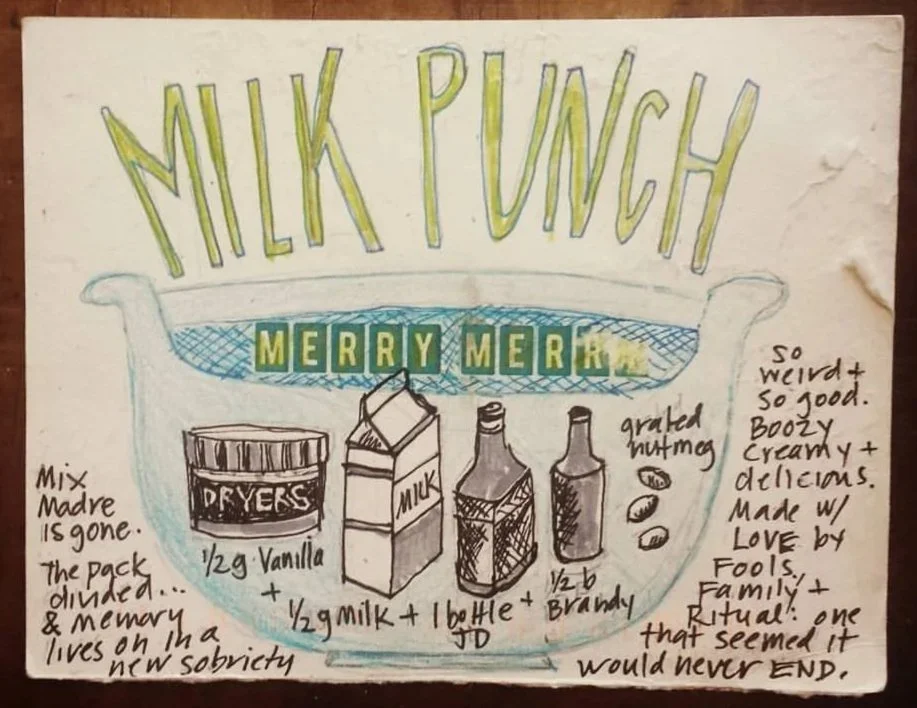 MILK PUNCH
MERRY MERRY
DRYERS
MILK
grated
nutmeg
1/2 g Vanilla
+
1/2 g Milk + 1 bottle +
JD
1/2 b
Brandy
Mix
Madre
is gone.
The pack
divided...
& memory
lives on in a
new sobriety
So
weird +
So good.
Boozy
Creamy +
delicious.
Made w/
LOVE by
Fools,
Family +
Ritual: one
that seemed it
would never END.